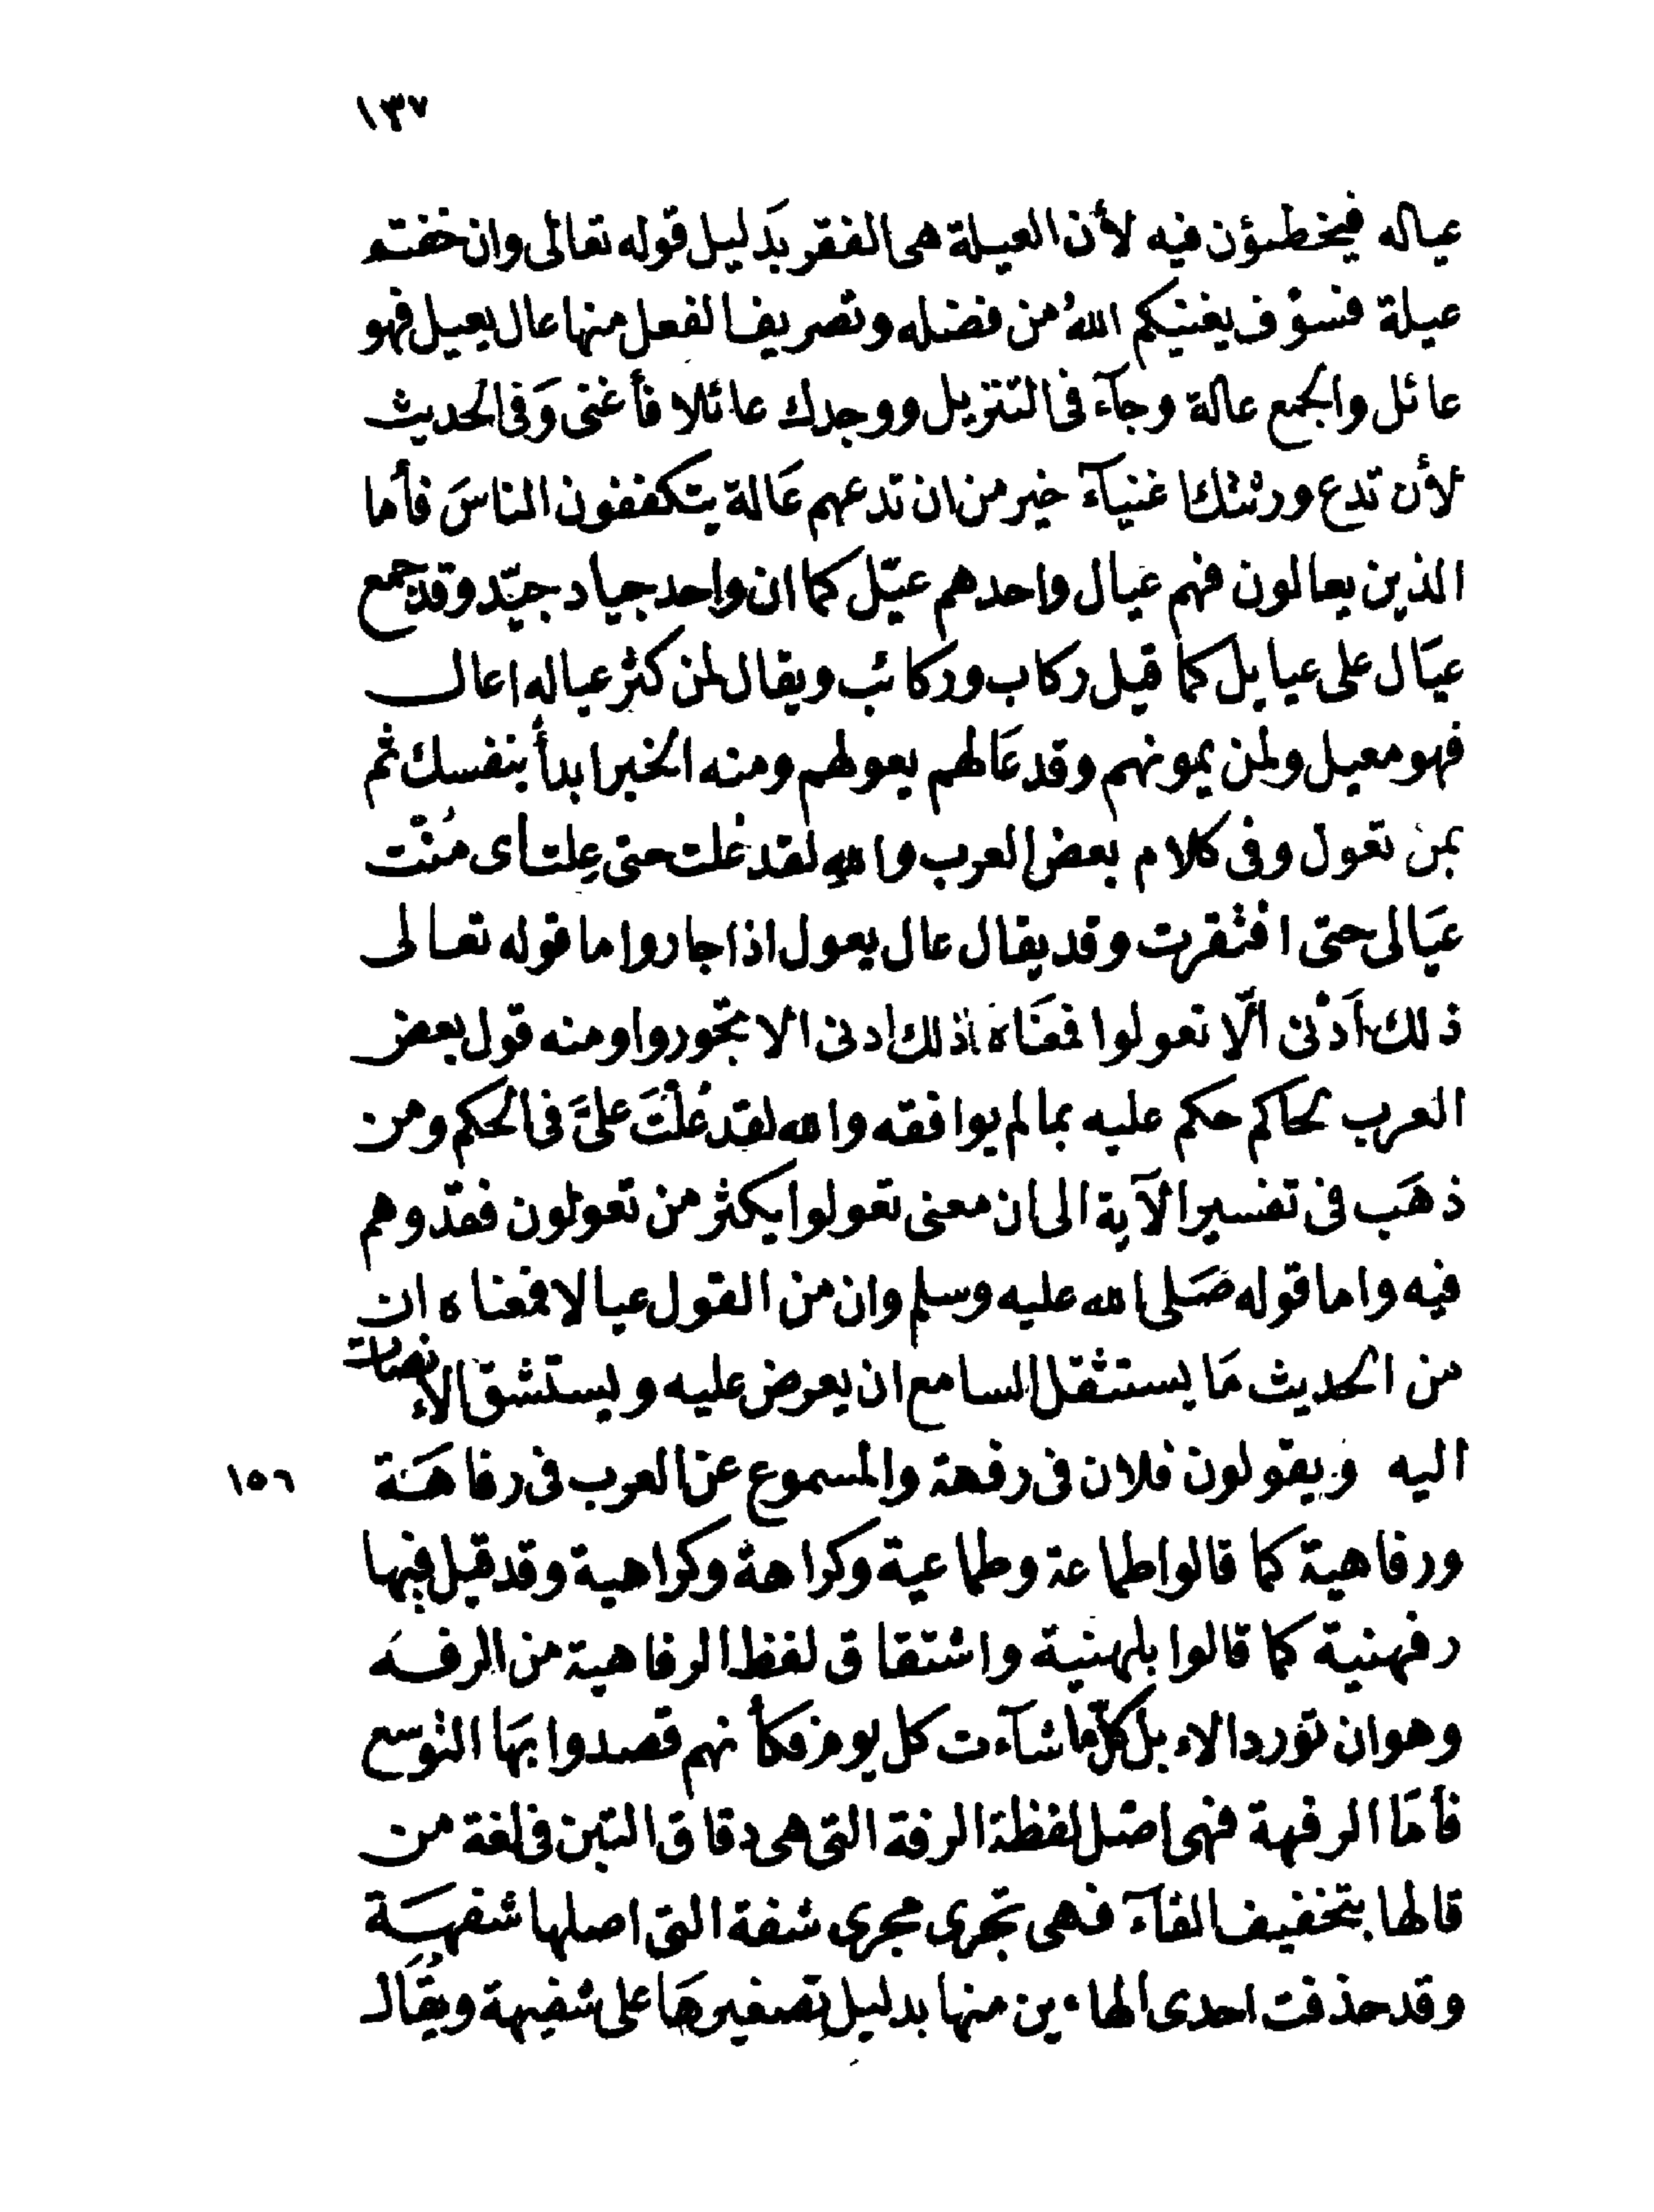 ١٣٧
عياله فيخطئون فيه لأن العيلة هى الفقر بدَليل قوله تعالى وان خفتم
عيلة فسوْف يغنيكم اللهُ من فضله وتصريف الفعل منها عال يعيل فهو
عائل والجمع عالة وجآء فى التنزيل ووجدك عائلا فأغنى وَفى الحديث
لأن تدع ورثتك اغنيآء خير من ان تدعهم عَالة يتكففون الناسَ فأما
الذين يعالون فهم عيال واحدهم عيّل كما ان واحد جياد جيّد وقد جمع
عيَال على عيايل كما قيل ركاب وركائب ويقال لمن كثر عياله اعال
فهو معيل ولمن يمونهم وقد عَالهم يعولهم ومنه الخبر ابدأ بنفسك ثم
بمن تعول وفى كلام بعض العرب والله لقد عُلت حتى عِلت أى مُنْت
عيَالى حتى افتقرت وقد يقال عال يعول اذا جار واما قوله تعالى
ذلك أَدْنى الّا تعولوا فمعنَاه ذلك ادنى الا تجوروا ومنه قول بعض
العرب لحاكم حكم عليه بما لم يوافقه والله لقد عُلْتَ علىَّ فى الحكم ومن
ذهَب فى تفسير الآية الى ان معنى تعولوا يكثر من تعولون فقد وهم
فيه واما قوله صَلى الله عليه وسلم وان من القول عيالا فمعناه ان
من الحديث مَا يستثقل السامع ان يعرض عليه ويستشق الانصات
اليه ويقولون فلان فى رفهة والمسموع عن العرب فى رفاهَة
١٥٦
ورفاهية كما قالوا طماعة وطماعية وكراهة وكراهية وقد قيل فيها
رفهنية كما قالوا بلهنية واشتقاق لفظ الرفاهية من الرفه
وهو ان تورد الابل كلّما شآءت كل يوم فكأنهم قصدوا بهَا التوسع
فأمَا الرفهة فهى اصل لفظة الرفة التى هى دقاق التبن فى لغة من
قالها بتخفيف الفآء فهى تجرى مجرى شفة التى اصلها شفهَة
وقد حذفت احدى الهاءين منها بدليل تصغيرهَا على شفيهة ويُقَال